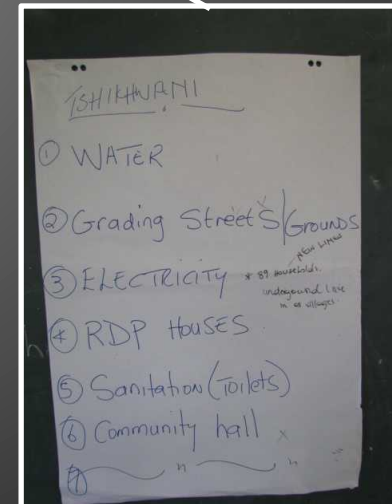 TSHIKHWANI
① WATER
② Grading Streets/Grounds
③ ELECTRICITY * 89 households.
underground line
in villages.
④ RDP HOUSES
⑤ Sanitation (Toilets)
⑥ Community hall x
⑦ n n